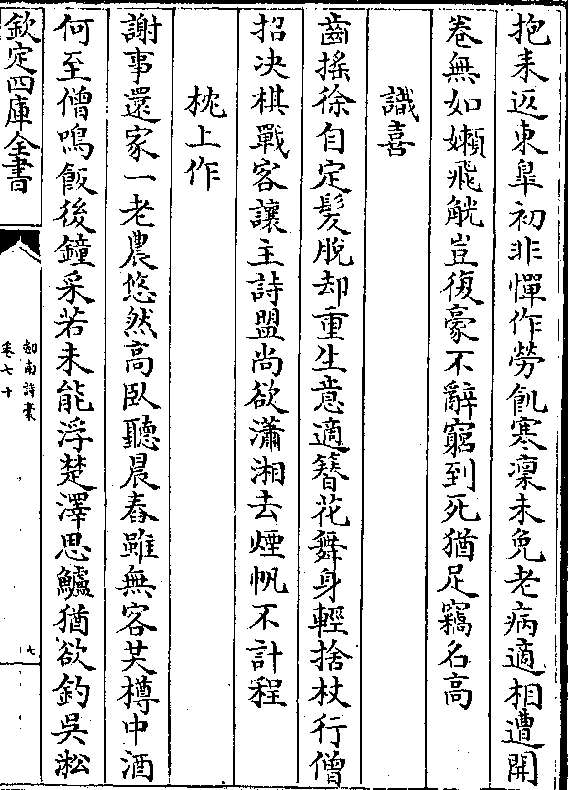 抱耒返東臯初非憚作勞飢寒凛未免老病適相遭開
卷無如嬾飛觥豈復豪不辭窮到死猶足竊名高
識喜
齒搖徐自定髮脫却重生意適簪花舞身輕捨杖行僧
招决棋戰客讓主詩盟尚欲瀟湘去煙帆不計程
枕上作
謝事還家一老農悠然髙臥聽晨舂雖無客共樽中酒
何至僧鳴飯後鐘采若未能浮楚澤思鱸猶欲釣吳淞
欽定四庫全書
劍南詩稾
卷七十
七